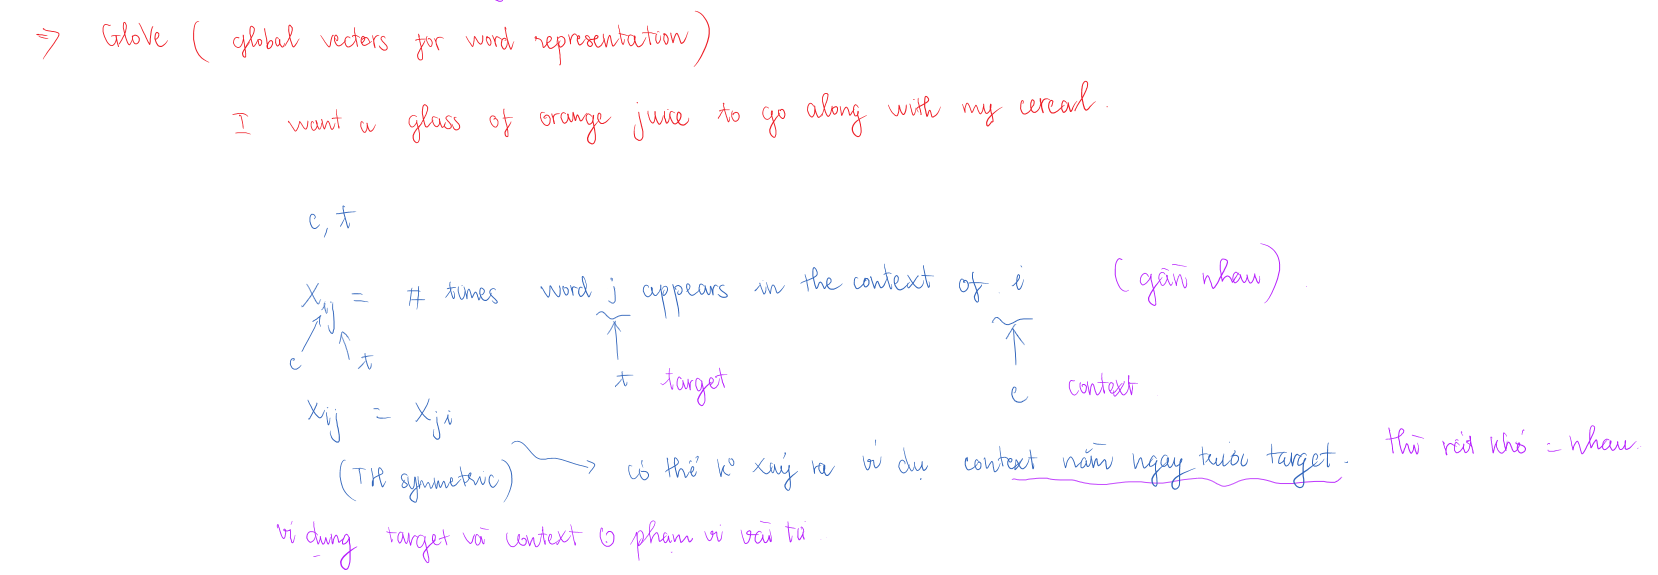 => GloVe ( global vectors for word representation)
I want a glass of orange juice to go along with my cereal.
c, t
Xij = # times word j appears in the context of i (gần nhau)
c t t target c context
Xij = Xji
(TH symmetric) → có thể ko xảy ra ví dụ context nằm ngay trước target. thì rất khó = nhau.
ví dụng target và context ở phạm vi vài từ